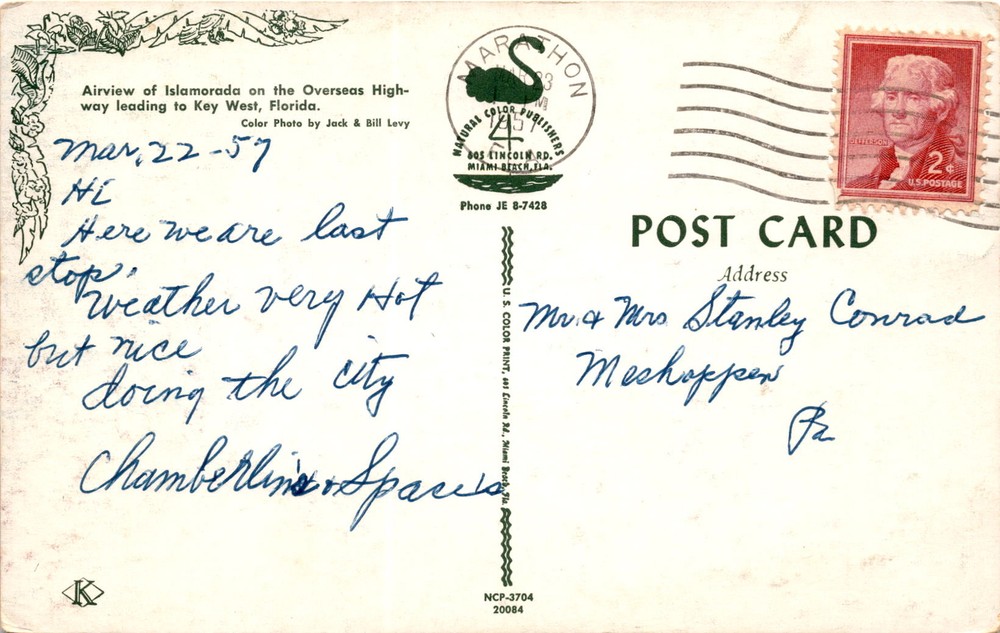 Airview of Islamorada on the Overseas High-
way leading to Key West, Florida.
Color Photo by Jack & Bill Levy
Mar, 22-57
HI
Here we are last
stop.
Weather very Hot
but nice
doing the city
Chamberlin's &
MARATHON
1957
NATURAL COLOR PUBLISHERS
605 LINCOLN RD.
MIAMI BEACH, FLA.
Phone JE 8-7428
U. S. COLOR PRINT, 605 Lincoln Rd., Miami Beach, Fla.
NCP-3704
20084
K
JEFFERSON
2¢
U.S. POSTAGE
POST CARD
Address
Mr. & Mrs Stanley Conrad
Meshoppen
Pa